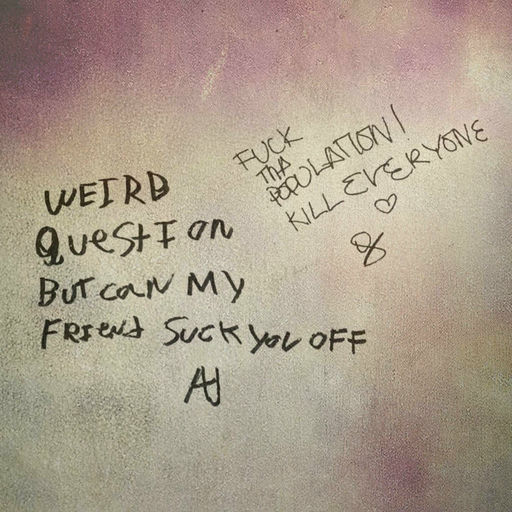 WEIRD
QuestIon
BUT can MY
FRIend SUCK you OFF
AJ
FUCK
THA
POPULATION!
KILL EVERYONE
♡